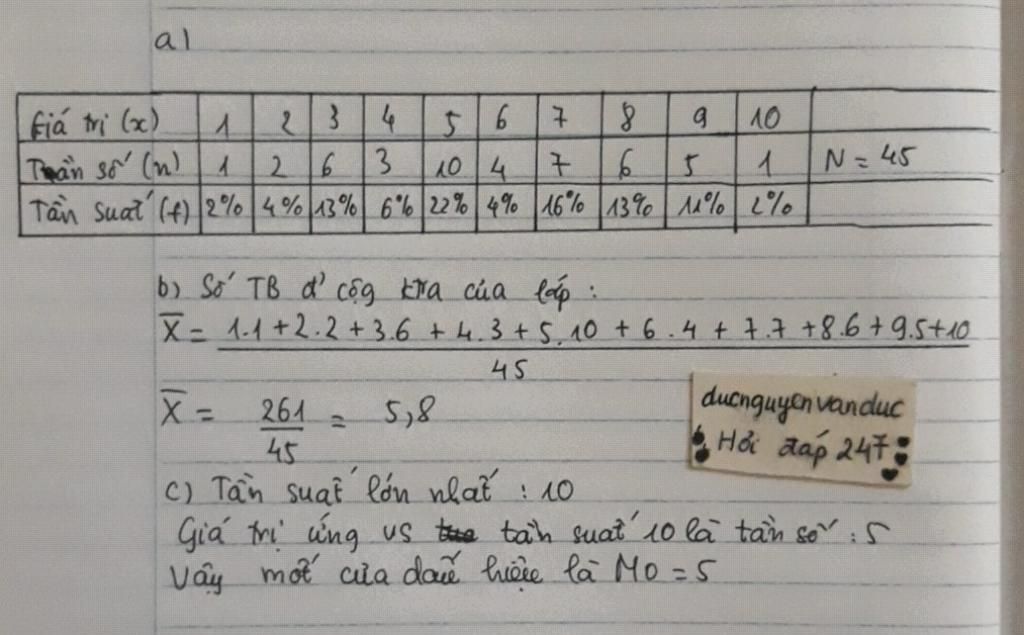 a)
Giá trị (x) 1 2 3 4 5 6 7 8 9 10
Tần số (n) 1 2 6 3 10 4 7 6 5 1 N = 45
Tần suất (f) 2% 4% 13% 6% 22% 4% 16% 13% 11% 2%
b) Số TB đ' cộg ktra của lớp :
X̄ = 1.1 + 2.2 + 3.6 + 4.3 + 5.10 + 6.4 + 7.7 + 8.6 + 9.5 + 10
45
X̄ = 261 = 5,8
45
ducnguyenvanduc
Hỏi đáp 247
c) Tần suất lớn nhất : 10
Giá trị ứng vs tần suất 10 là tần số : 5
Vậy mốt của dấu hiệu là M0 = 5